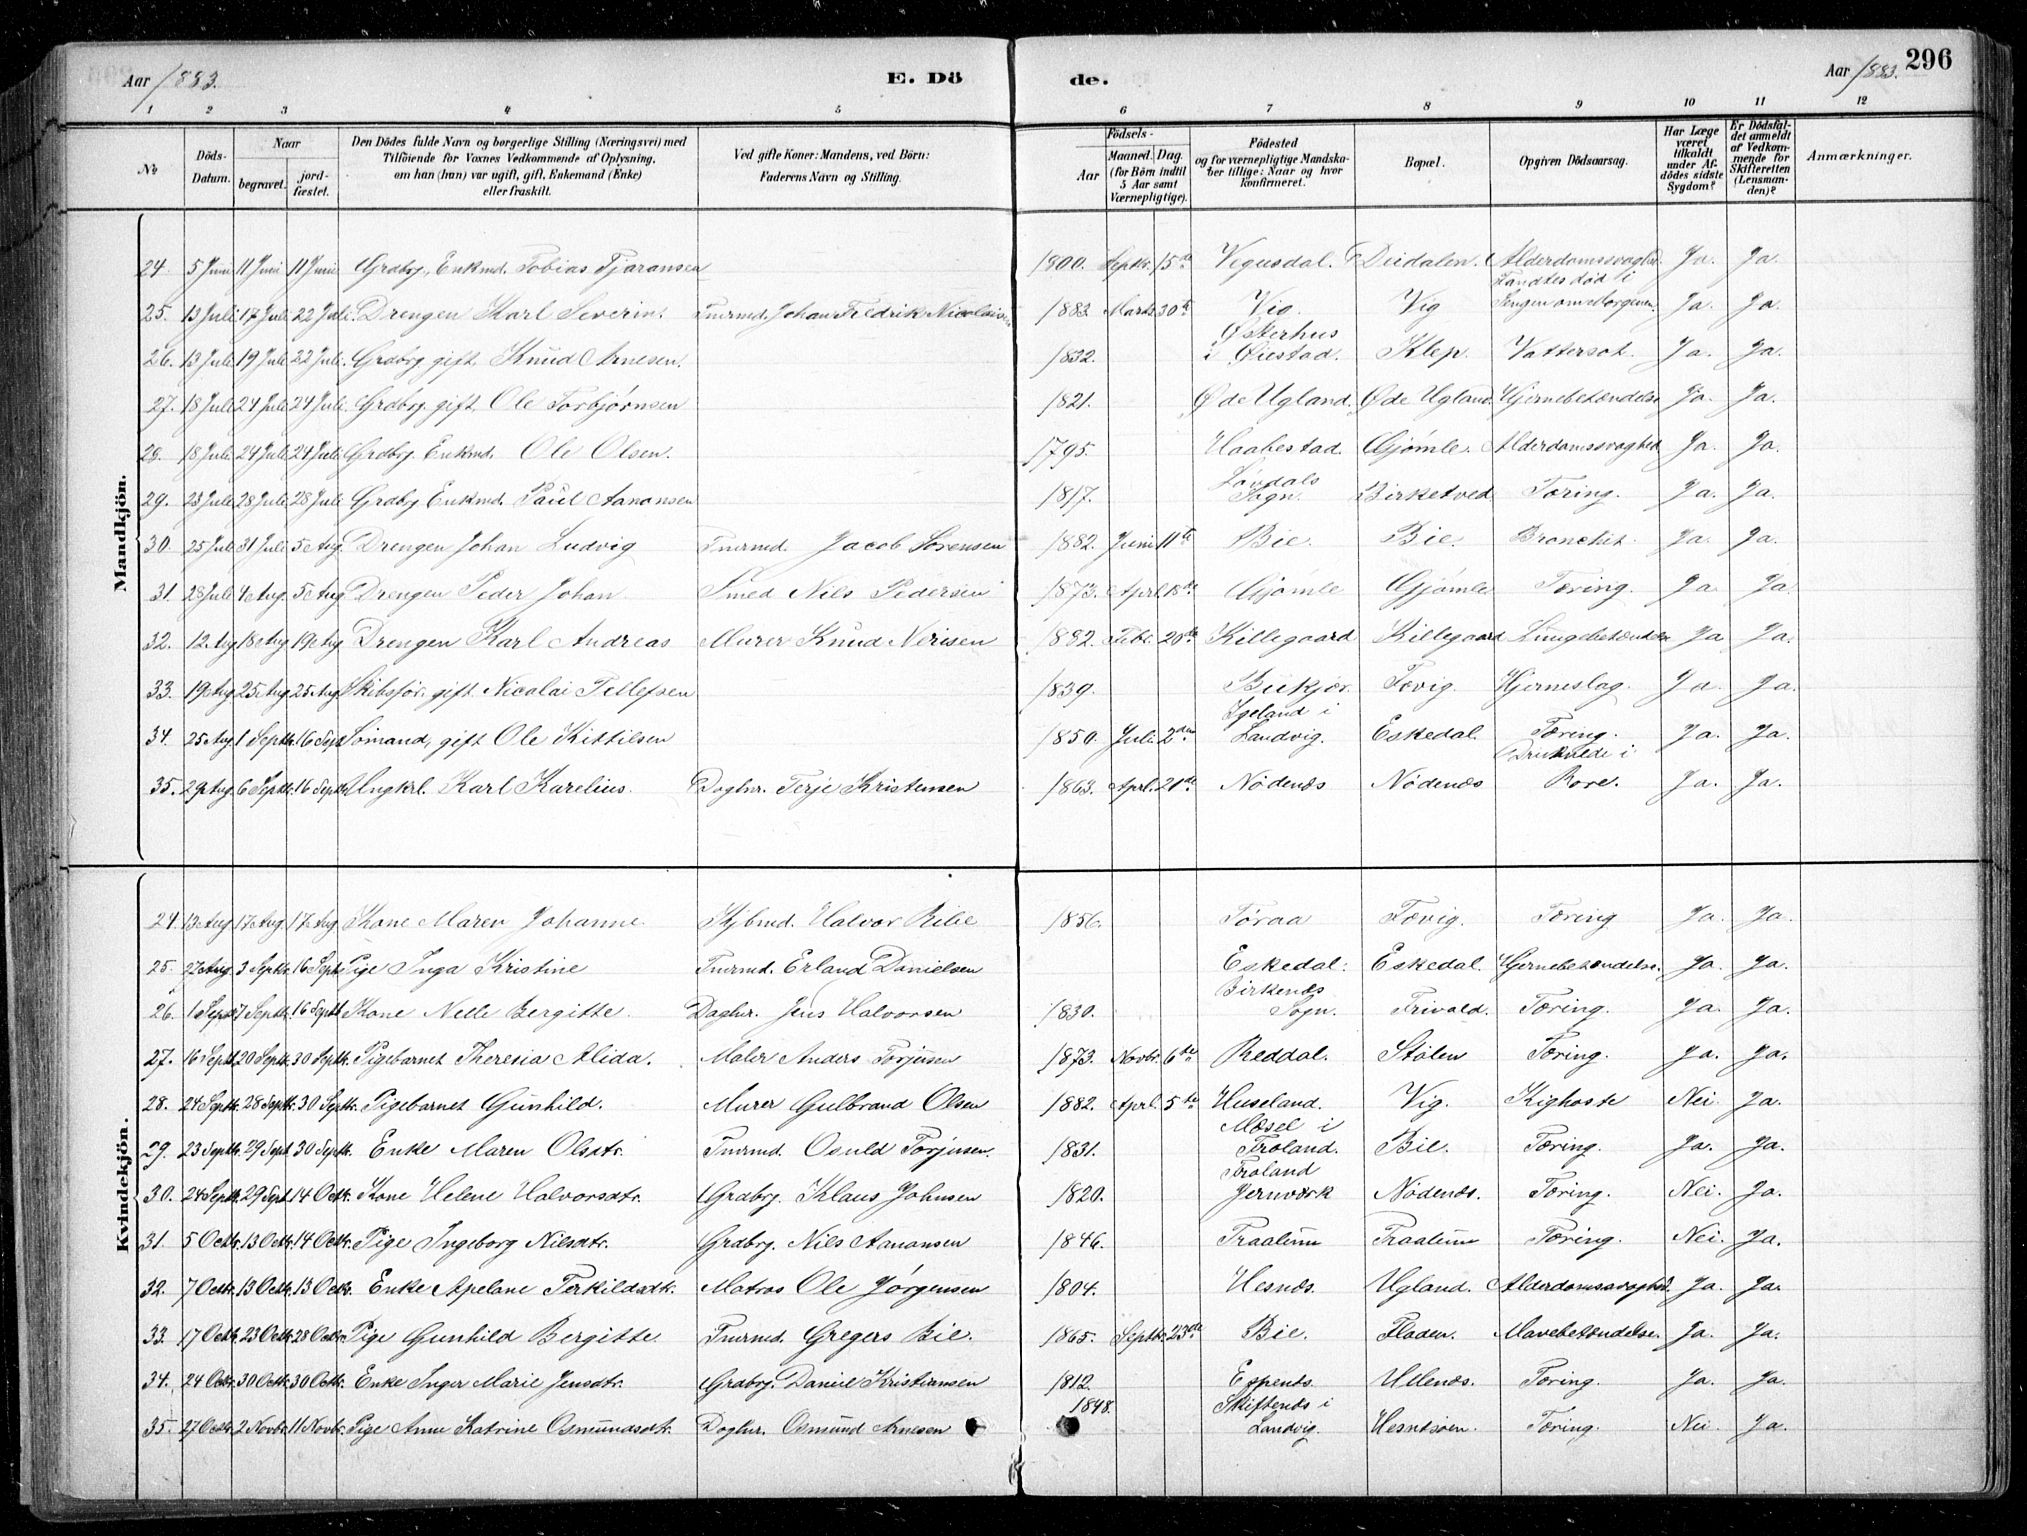 296
Aar 1883. E. Dö de. Aar 1883.
1 2 3 4 5 6 7 8 9 10 11 12
No Döds-Datum. Naar begravet. jordfæstet. Den Dödes fulde Navn og borgerlige Stilling (Næringsvei) med Tilföiende for Voxnes Vedkommende af Oplysning, om han (hun) var ugift, gift, Enkemand (Enke) eller fraskilt. Ved gifte Koner: Mandens, ved Börn: Faderens Navn og Stilling. Födsels- Aar Maaned. Dag. (for Börn indtil 5 Aar samt Værnepligtige). Födested og for værnepligtige Mandskaber tillige: Naar og hvor konfirmeret. Bopæl. Opgiven Dödsaarsag. Har Læge været tilkaldt under Afdödes sidste Sygdom? Er Dödsfaldet anmeldt af Vedkommende for Skifteretten (Lensmanden)? Anmærkninger.
Mandkjön.
24. 5 Juni 11 Juni 11 Juni Grdbrg. Enkmd. Tobias Tjøransen 1800. Septr. 15de Vegusdal. Dydalen. Alderdomssvaghed. Ja. Ja.
25. 13 Juli 17 Juli 22 Juli. Drengen Karl Severin. Tmrmd. Johan Fredrik Nicolaisen 1883. Marts 30te Vig. Vig Fandtes død i Sengen om Morgenen. Ja. Ja.
26. 13 Juli 19 Juli 22 Juli. Grdbrg. gift. Knud Arnesen. 1832. Østerhus i Øiestad. Klep. Vattersot. Ja. Ja.
27. 18 Juli 24 Juli 24 Juli. Grdbrg. gift. Ole Torbjørnsen 1821. Øde Ugland. Øde Ugland. Hjernebetændelse Ja. Ja.
28. 18 Juli 24 Juli 24 Juli Grdbrg Enkmd. Ole Olsen. 1795. Haabestad. Gjømle. Alderdomssvaghed Ja. Ja.
29. 23 Juli 28 Juli 28 Juli Grdbrg Enkmd. Paul Aanonsen 1817. Løvdals Sogn. Birketved Tæring. Ja. Ja.
30. 25 Juli 31 Juli 5 Aug. Drengen Johan Ludvig Tmrmd. Jacob Sørensen 1882. Juni 11te Bie. Bie. Bronchit. Ja. Ja.
31. 28 Juli 4 Aug. 5 Aug Drengen Peder Johan Smed Nils Pedersen 1873. Apri. 18de Gjømle Gjømle Tæring. Ja. Ja.
32. 12 Aug 18 Aug 19 Aug Drengen Karl Andreas Murer Knud Nerisen 1882. Febr. 20de Killegaard Killegaard Lungebetændelse Ja Ja.
33. 19 Aug 25 Aug 25 Aug Skibsfør. gift Nicolai Tellefsen 1839. Biekjær. Fevig. Hjerneslag. Ja. Ja.
34. 25 Aug. 1 Septr. 16 Sept Sömand, gift Ole Kittilsen 1850. Juli 2den Igeland i Landvig. Eskedal. Tæring. Ja. Ja.
35. 29 Aug. 6 Septr. 16 Septr Ungkrl. Karl Karelius. Daglnr. Terje Kristensen 1863. Aprl. 21de Nödenæs Nödenæs Druknede i Rore. Ja. Ja.
Kvindekjön.
24. 13 Aug 17 Aug. 17 Aug Kone Maren Johanne Kjbmd. Halvor Ribe 1856. Töraa Fævig. Tæring Ja. Ja.
25. 27 Aug. 3 Septr. 16 Sept. Pige Inga Kristine Tmrmd. Erland Danielsen Eskedal. Eskedal. Hjernebetændelse. Ja. Ja.
26. 1 Septr 7 Septr. 16 Septr Kone Nelle Bergitte. Daglnr. Jens Halvorsen 1830. Birkenæs Sogn. Trivold. Tæring. Ja. Ja.
27. 16 Septr. 20 Septr. 30 Septr. Pigebarnet Theresia Alida. Maler Anders Torjusen 1873. Novbr. 6te Reddal. Stölen Tæring. Ja. Ja.
28. 24 Septr. 28 Septr. 30 Septr. Pigebarnet Gunhild. Murer Gulbrand Olsen 1882. Aprl. 5te Huseland. Vig. Kighoste Nei. Ja.
29. 23 Septr. 29 Sept 30 Septr. Enke Maren Olsdtr. Tmrmd. Osuld Torjusen. 1831. Mæsel i Froland. Bie. Tæring. Ja. Ja.
30. 24 Septr. 29 Sept 14 Octr. Kone Helene Halvorsdtr. Grdbrg. Klaus Johnsen 1820. Froland Jernværk Nödenæs. Tæring. Nei. Ja.
31. 5 Octr. 13 Octr. 14 Octr. Pige Ingeborg Nilsdtr. Grdbrg. Nils Aanonsen 1846. Traalum Traalum Tæring. Nei. Ja.
32. 7 Octr. 13 Octr. 13 Octr. Enke Apelone Terkildsdtr. Matros Ole Jørgensen 1804. Hesnæs. Ugland. Alderdomssvaghed. Ja. Ja.
33. 17 Octr. 23 Octr. 28 Octr. Pige Gunhild Bergitte Tmrmd. Gregers Bie. 1865. Septr. 23de Bie. Fladen. Mavebetændelse. Ja. Ja.
34. 24 Octr. 30 Octr. 30 Octr. Enke Inger Marie Jensdtr. Grdbrg. Daniel Kristiansen 1812. Espenæs. Ullenæs. Tæring. Ja. Ja.
35. 27 Octr. 2 Novbr. 11 Novbr. Pige Anne Katrine Osmundsdtr. Daglnr. Osmund Arnesen 1848. Skiftenæs i Landvig. Hesnæsöen. Tæring. Nei Ja.